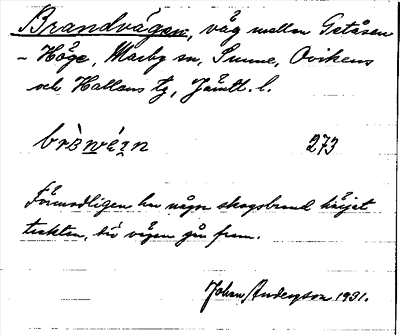 Brandvägen, väg mellan Getåsen
- Höge, Marby sn, Sunne, Ovikens
och Hallens tg, Jämtl. l.
273
Förmodligen har någon skogsbrand härjat
trakten, där vägen går fram.
Johan Anderzon 1931.